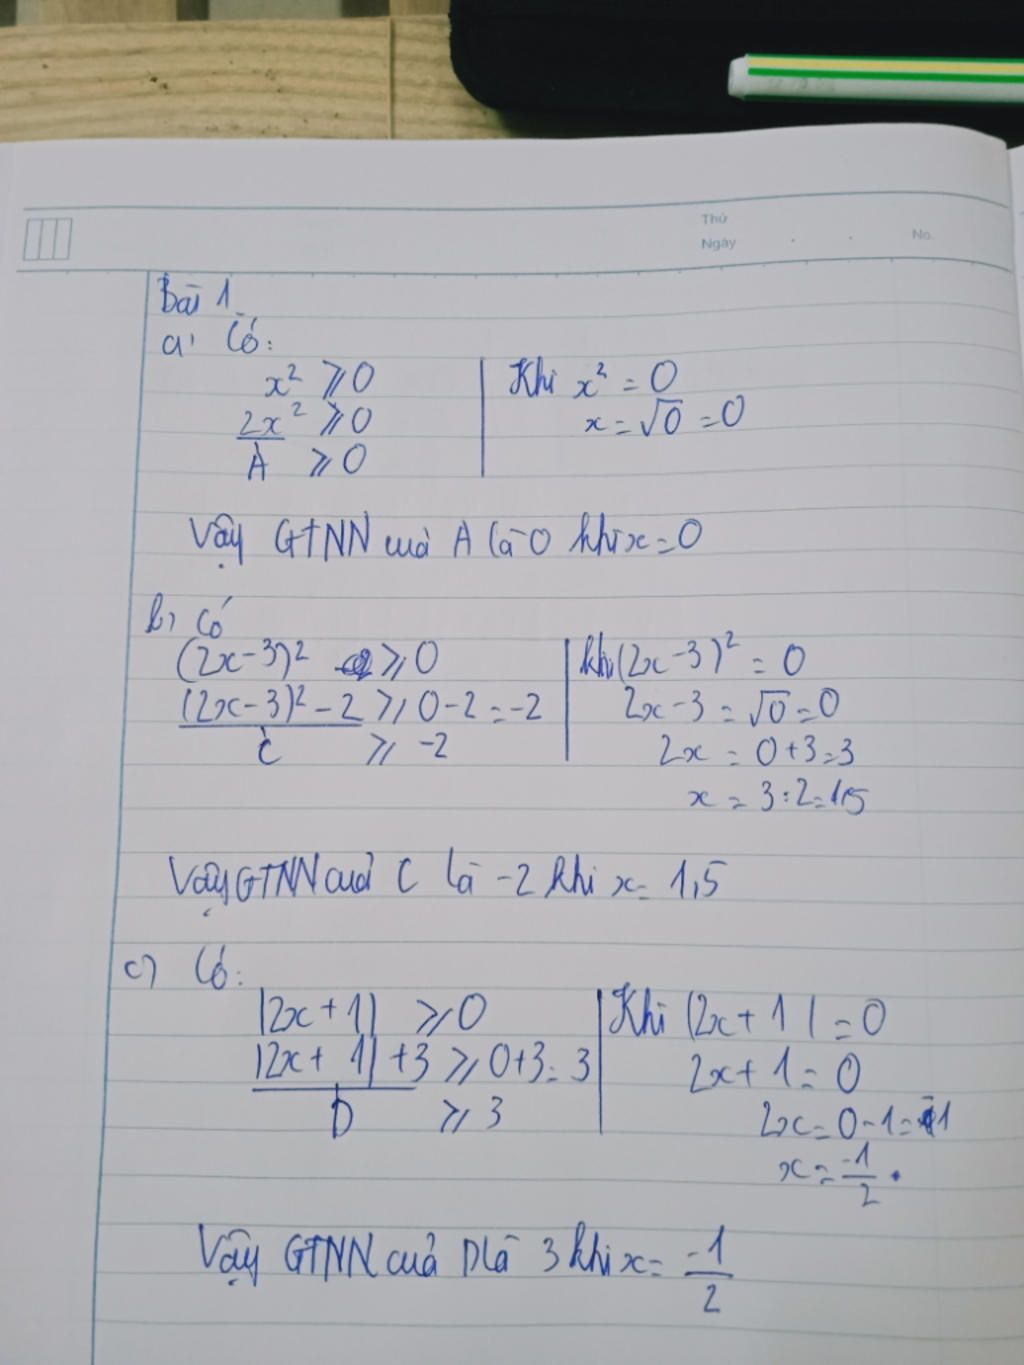 Thứ
Ngày . . No.
Bài 1
a, Có:
x² ⩾ 0 | Khi x² = 0
2x² ⩾ 0 | x = √0 = 0
A ⩾ 0
Vậy GTNN của A là 0 khi x = 0
b, Có
(2x-3)² ⩾ 0 | khi (2x-3)² = 0
(2x-3)² - 2 ⩾ 0-2 = -2 | 2x-3 = √0 = 0
C ⩾ -2 | 2x = 0+3 = 3
x = 3:2 = 1,5
Vậy GTNN của C là -2 khi x = 1,5
c, Có:
|2x + 1| ⩾ 0 | Khi |2x + 1| = 0
|2x + 1| + 3 ⩾ 0+3 = 3 | 2x + 1 = 0
D ⩾ 3 | 2x = 0-1 = -1
x = -1/2 .
Vậy GTNN của D là 3 khi x = -1/2